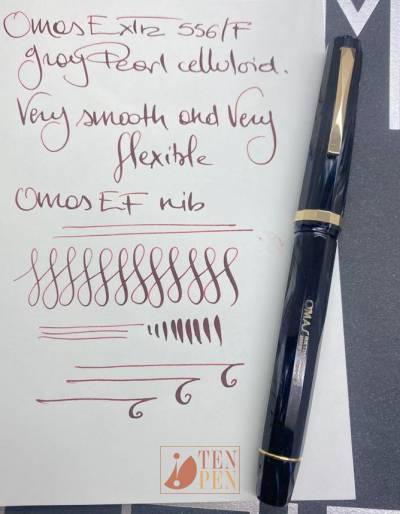 Omas Extra 556/F
gray Pearl celluloid.
Very smooth and Very
flexible
Omas EF nib
OMAS EXTRA
TEN
PEN